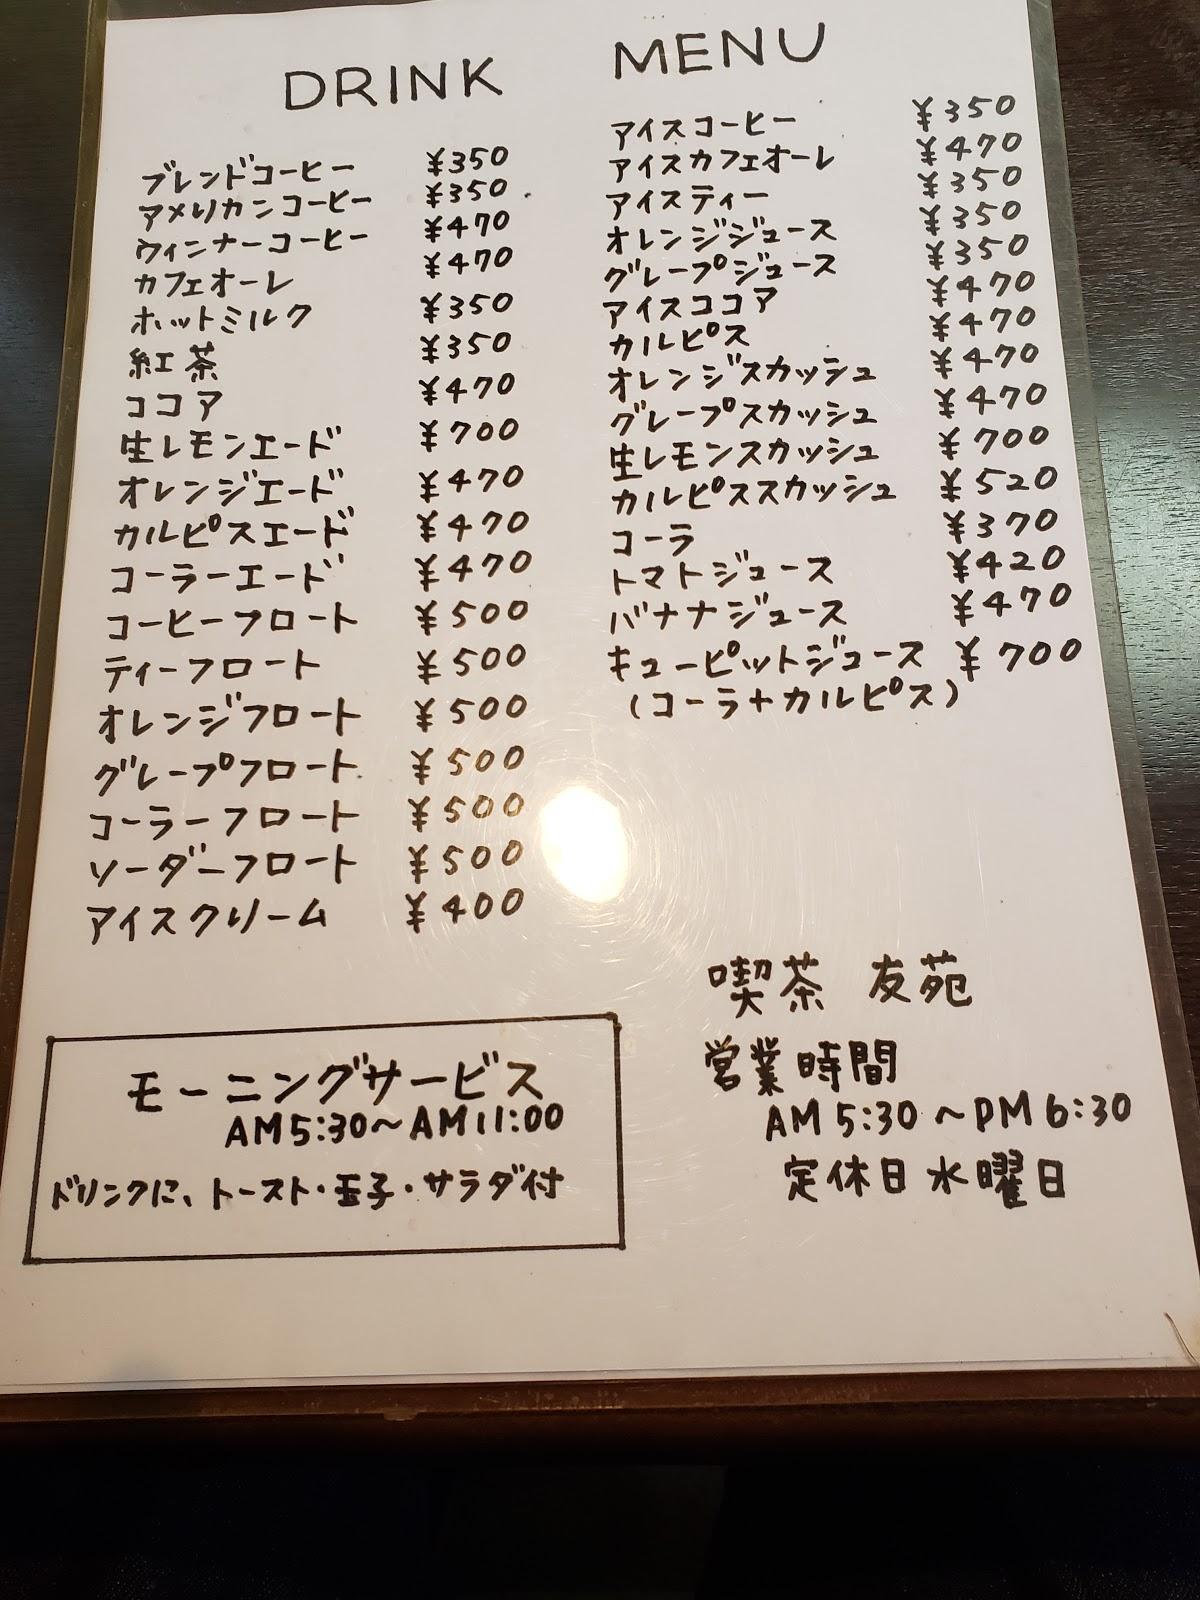 DRINK MENU
ブレンドコーヒー ¥350
アメリカンコーヒー ¥350
ウィンナーコーヒー ¥470
カフェオーレ ¥470
ホットミルク ¥350
紅茶 ¥350
ココア ¥470
生レモンエード ¥700
オレンジエード ¥470
カルピスエード ¥470
コーラーエード ¥470
コーヒーフロート ¥500
ティーフロート ¥500
オレンジフロート ¥500
グレープフロート ¥500
コーラーフロート ¥500
ソーダーフロート ¥500
アイスクリーム ¥400
アイスコーヒー ¥350
アイスカフェオーレ ¥470
アイスティー ¥350
オレンジジュース ¥350
グレープジュース ¥350
アイスココア ¥470
カルピス ¥470
オレンジスカッシュ ¥470
グレープスカッシュ ¥470
生レモンスカッシュ ¥700
カルピススカッシュ ¥520
コーラ ¥370
トマトジュース ¥420
バナナジュース ¥470
キューピットジュース ¥700
(コーラ+カルピス)
モーニングサービス
AM5:30~AM11:00
ドリンクに、トースト・玉子・サラダ付
喫茶 友苑
営業時間
AM 5:30 ~PM 6:30
定休日 水曜日